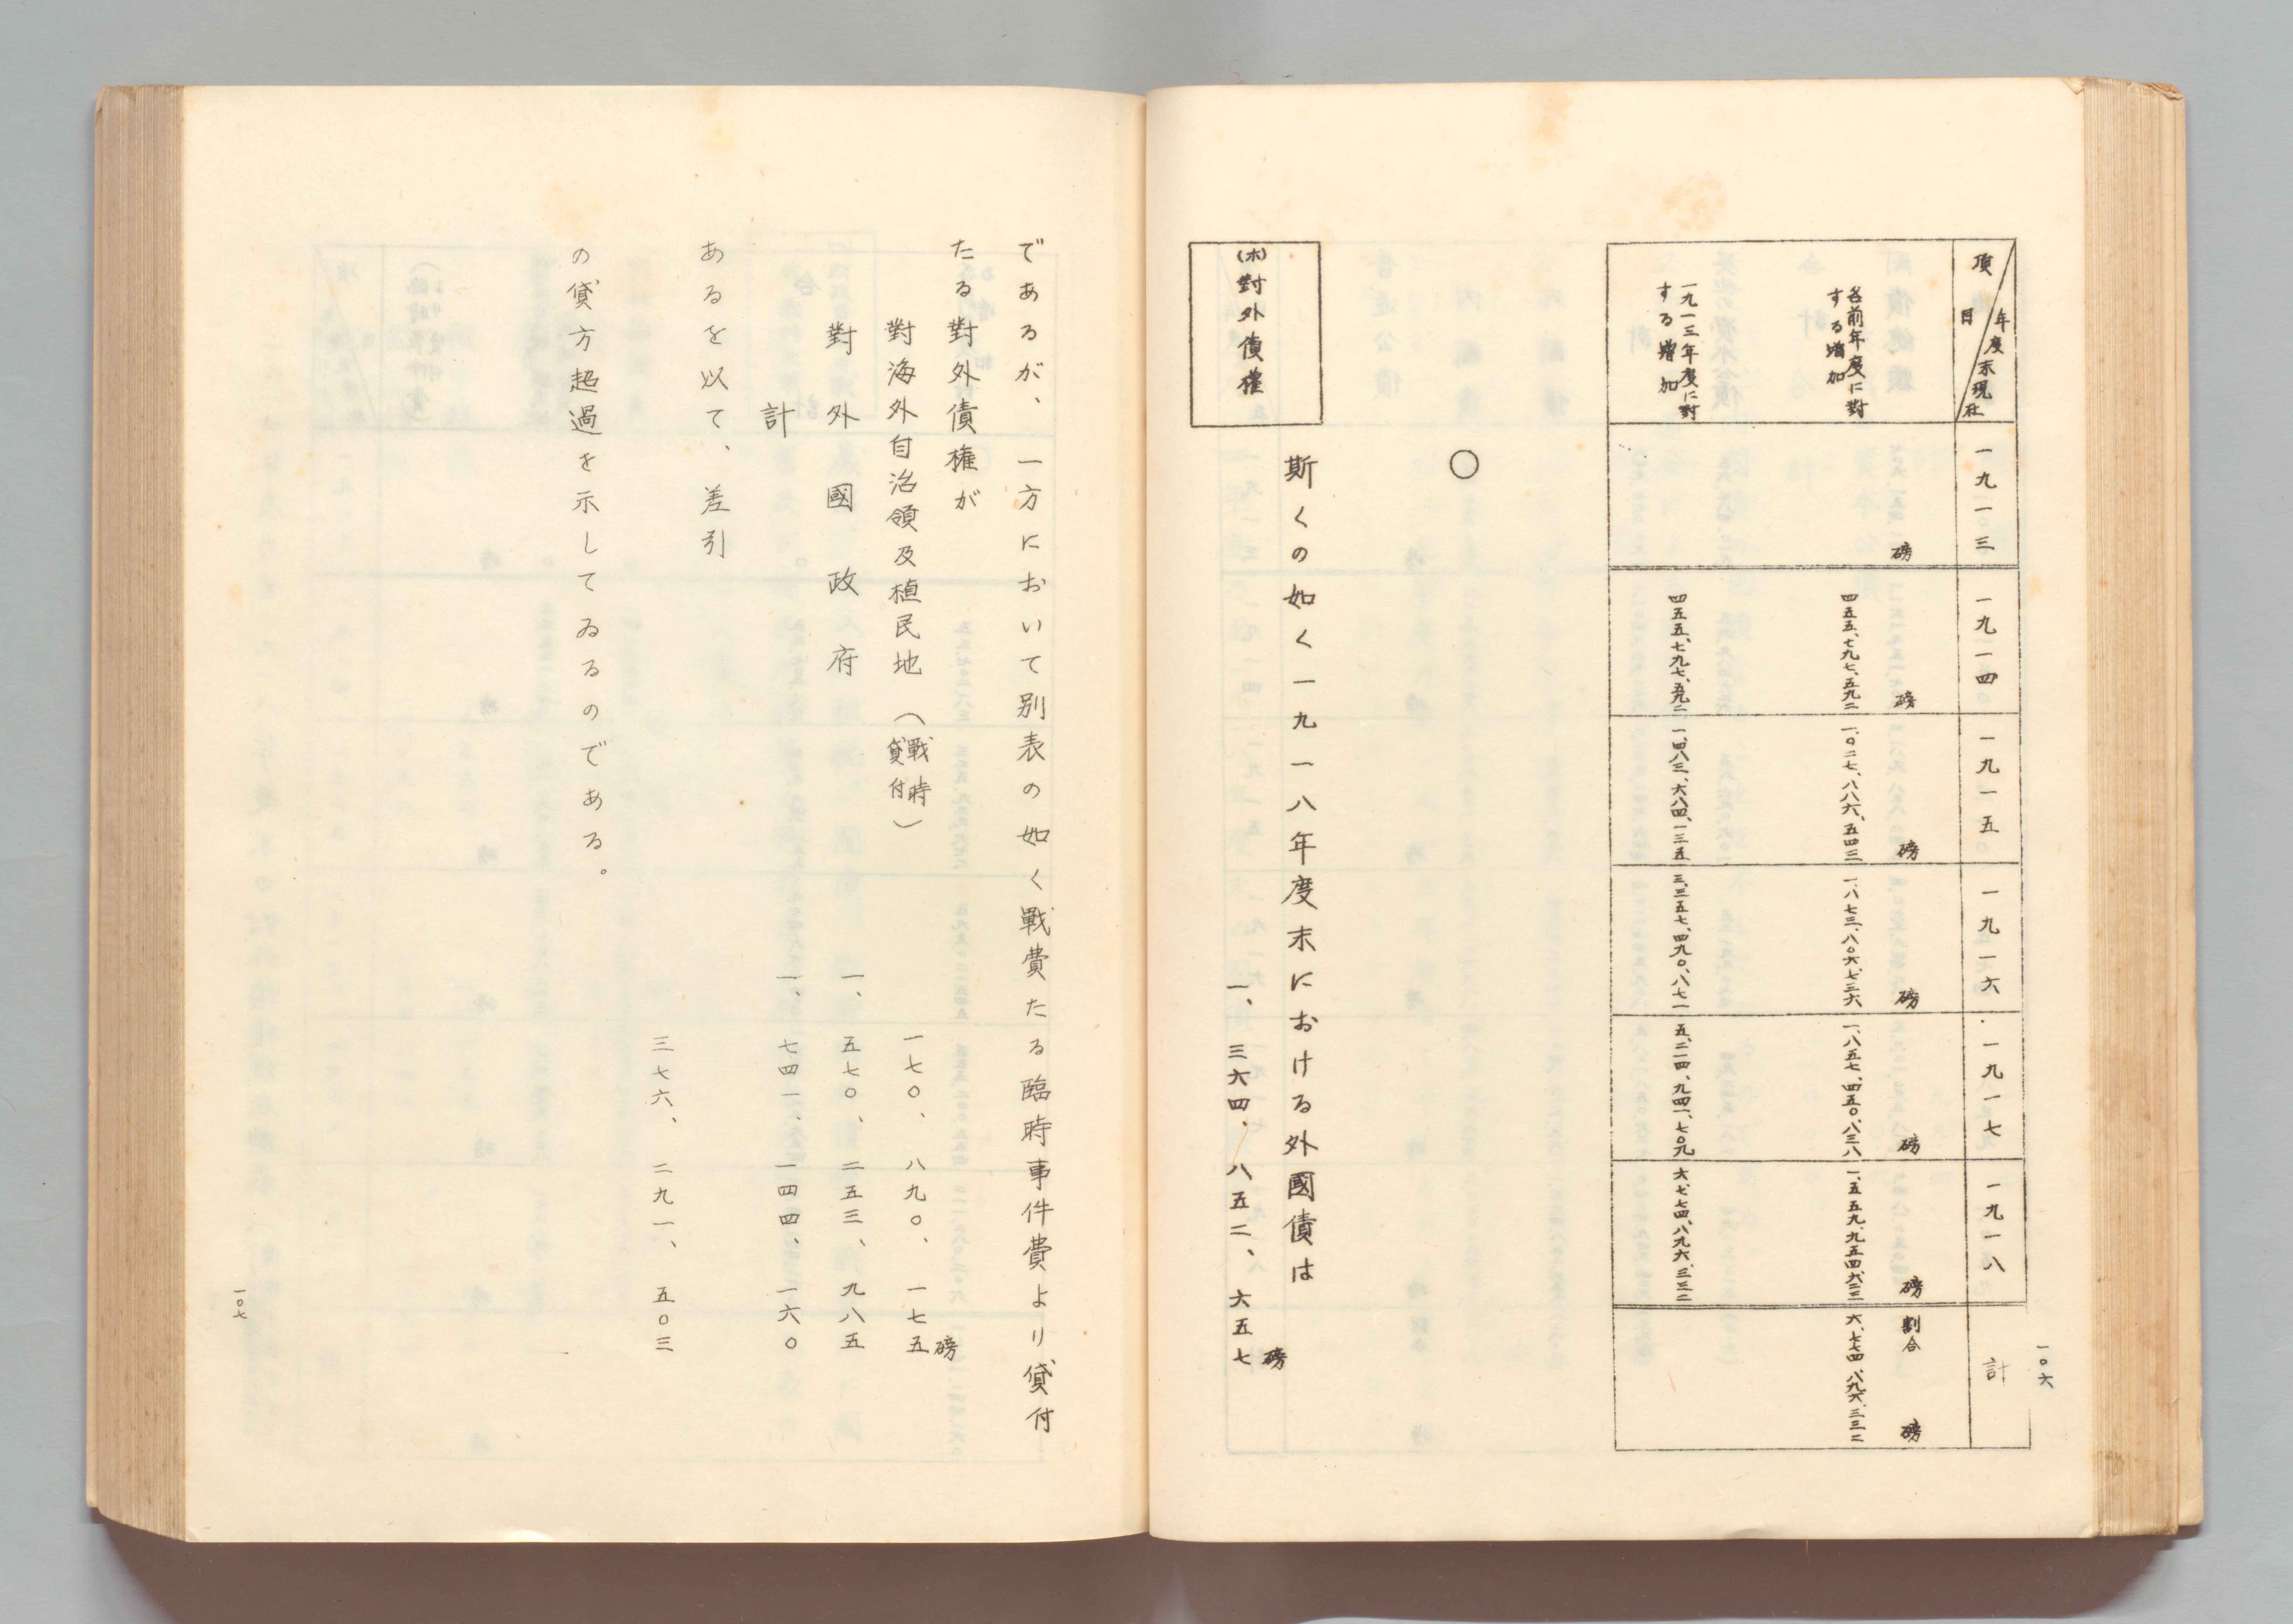 一〇六
項目
年度末現在
一九一三
一九一四
一九一五
一九一六
一九一七
一九一八
計
磅
磅
磅
磅
磅
磅
割合
磅
各前年度に對
する増加
四五五、七九七、五九二
一、〇二七、八八六、五四三
一、八七三、八〇六、七三六
一、八五七、四五〇、八三八
一、五五九、九五四、六二三
六、七七四、八九六、三三二
一九一三年度に對
する増加
四五五、七九七、五九二
一、四八三、六八四、一三五
三、三五七、四九〇、八七一
五、二一四、九四一、七〇九
六、七七四、八九六、三三二
〇
斯くの如く一九一八年度末における外國債は
(ホ)對外債權
磅
一、三六四、八五二、六五七
であるが、一方において別表の如く戰費たる臨時事件費より貸付
たる對外債権が
磅
對海外自治領及植民地(戰時貸付) 一七〇、八九〇、一七五
對外國政府 一、五七〇、二五三、九八五
計 一、七四一、一四四、一六〇
あるを以て、差引
三七六、二九一、五〇三
の貸方超過を示してゐるのである。
一〇七